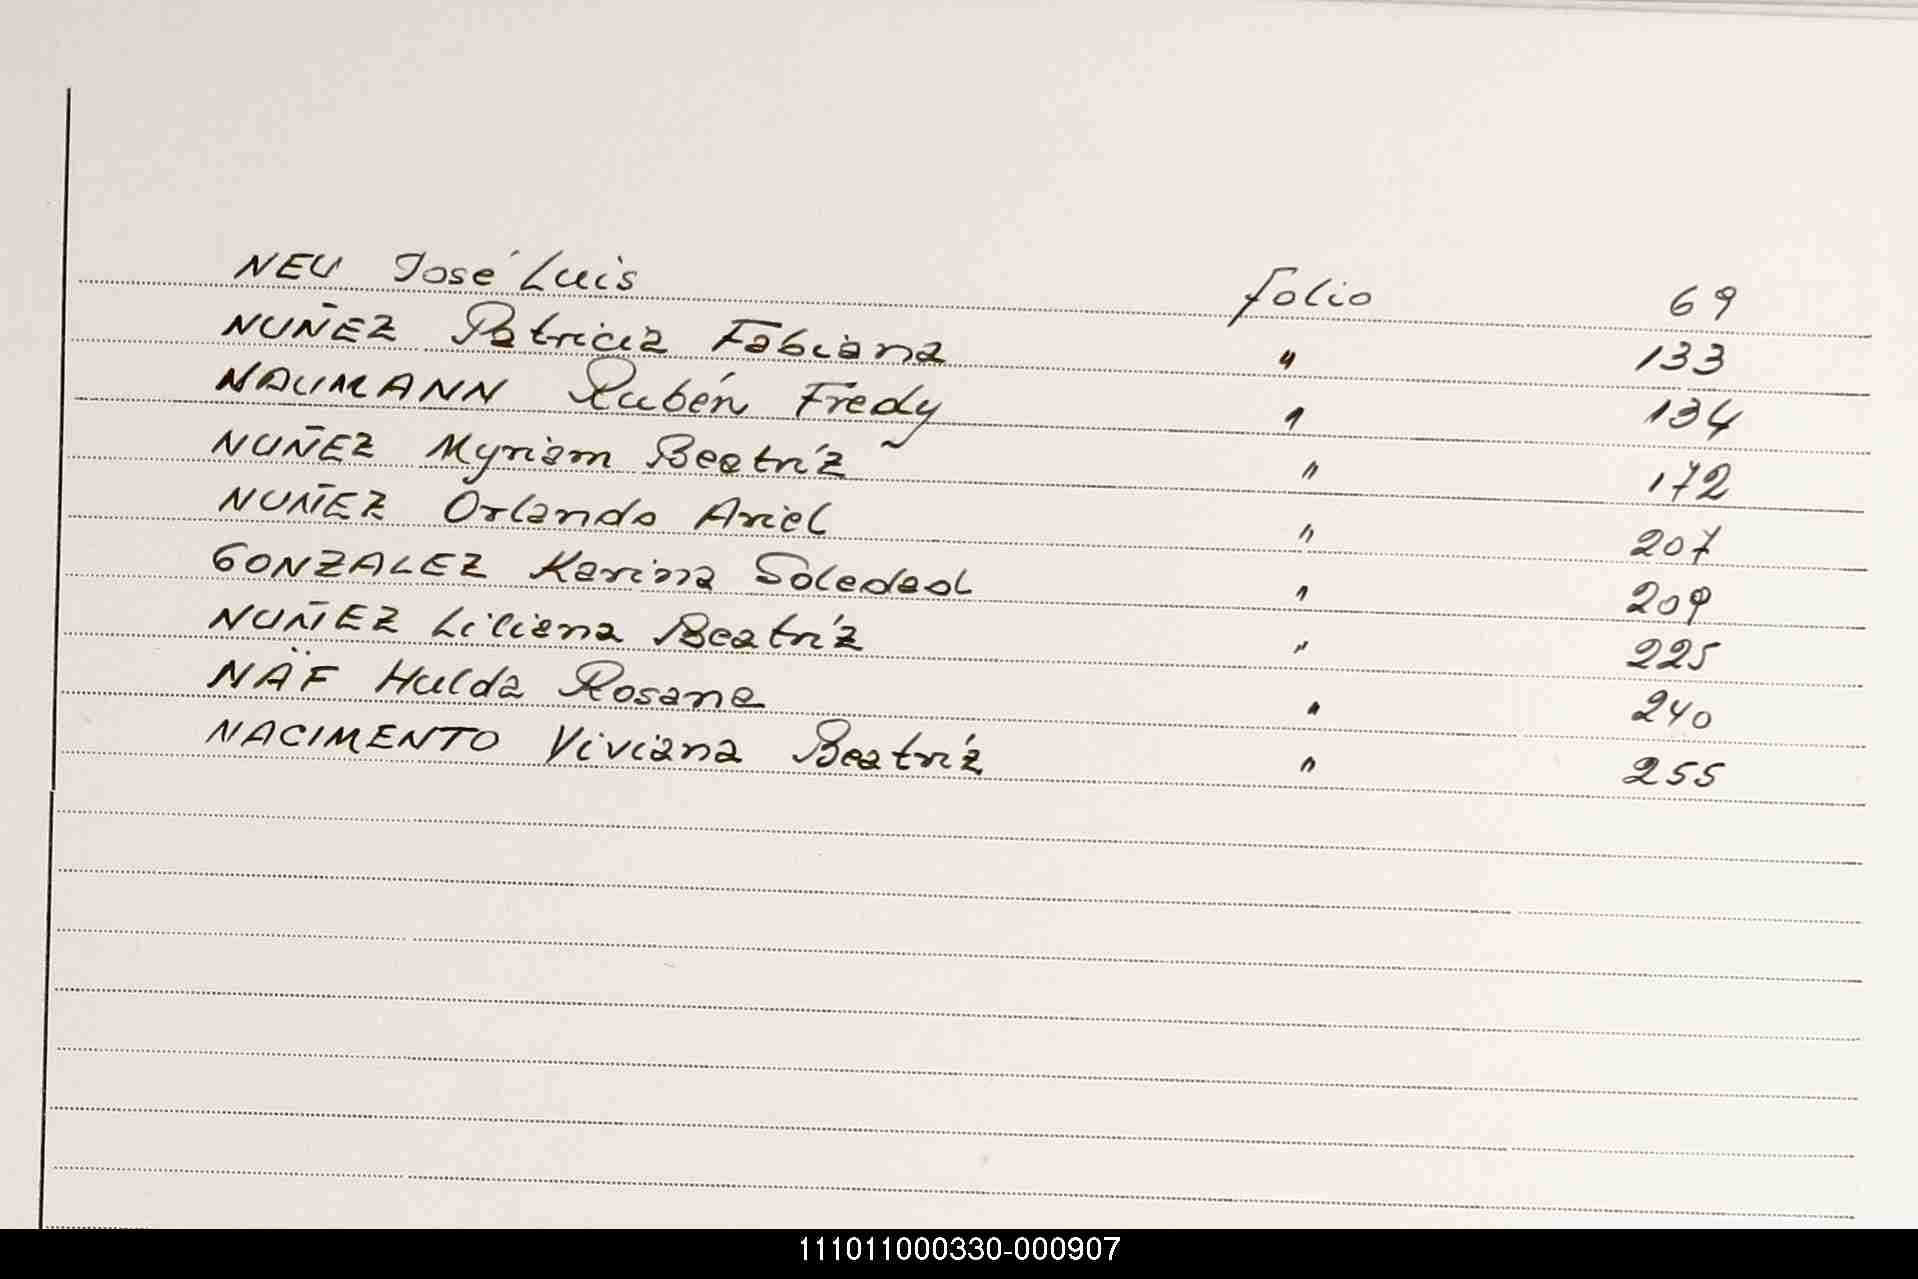 NEU José Luis folio 69
NUÑEZ Patricia Fabiana " 133
NAUMANN Rubén Fredy " 134
NUÑEZ Myriam Beatríz " 172
NUÑEZ Orlando Ariel " 207
GONZALEZ Karina Soledad " 209
NUÑEZ Liliana Beatríz " 225
NÄF Hulda Rosane " 240
NACIMENTO Viviana Beatríz " 255
111011000330-000907